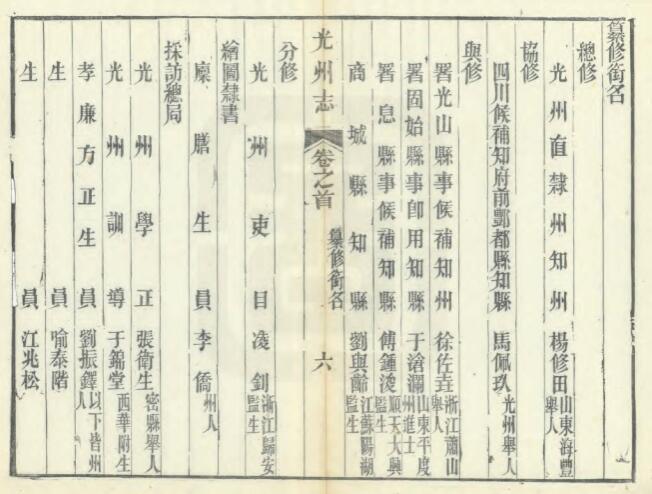 纂修銜名
總修
光州直隸州知州楊修田山東海豐舉人
協修
四川候補知府前酆都縣知縣馬佩玖光州舉人
與修
署光山縣事候補知州徐佐垚浙江蕭山舉人
署固始縣事卽用知縣于滄瀾山東平度州進士
署息縣事候補知縣傅鍾浚順天大興監生
商城縣知縣劉與齡江蘇陽湖監生
光州志 卷之首 纂修銜名 六
分修
光州吏目凌釗浙江歸安監生
繪圖隸書
廩膳生員李僑州人
採訪總局
光州學正張衛生密縣舉人
光州訓導于錦堂西華附生
孝廉方正生員劉振鐸以下皆州人
生員喻泰階
生員江兆松